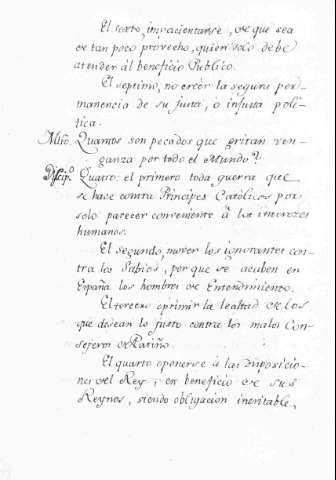 El sexto, impacientarse, de que sea
de tan poco provecho, quien solo debe
atender ál beneficio Publico.
El septimo, no creèr la segura per-
manencia de su justa, ò injusta poli-
tica.
Mtro. Quantos son pecados que gritan ven-
ganza por todo el Mundo?
Discip.o Quatro: el primero toda guerra que
se hace contra Principes Catòlicos por
solo parecer conveniente à las intereses
humanos.
El segundo, mover los ignorantes con-
tra los Sabios, por que se acaben en
España los hombres de Entendimiento.
El tercero oprimir la lealtad de los
que desean lo justo contra los malos Con-
sejeros de Patiño.
El quarto oponerse à las disposicio-
nes del Rey, en beneficio de sus
Reynos, siendo obligacion inevitable,